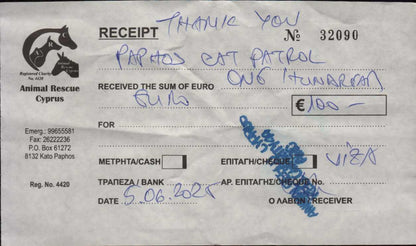 THANK YOU
RECEIPT
№ 32090
PAPHOS CAT PATROL
Registered Charity
No. 4420
Animal Rescue
Cyprus
ONE HUNDRED
RECEIVED THE SUM OF EURO
EURO
€100-
FOR
Emerg.: 99655581
Fax: 26222236
P.O. Box 61272
8132 Kato Paphos
ΜΕΤΡΗΤΑ/CASH
ΕΠΙΤΑΓΗ/CHEQUE
VIZA
Reg. No. 4420
ΤΡΑΠΕΖΑ / BANK
ΑΡ. ΕΠΙΤΑΓΗΣ/CHEQUE No.
DATE 5.06.2025
Ο ΛΑΒΩΝ / RECEIVER